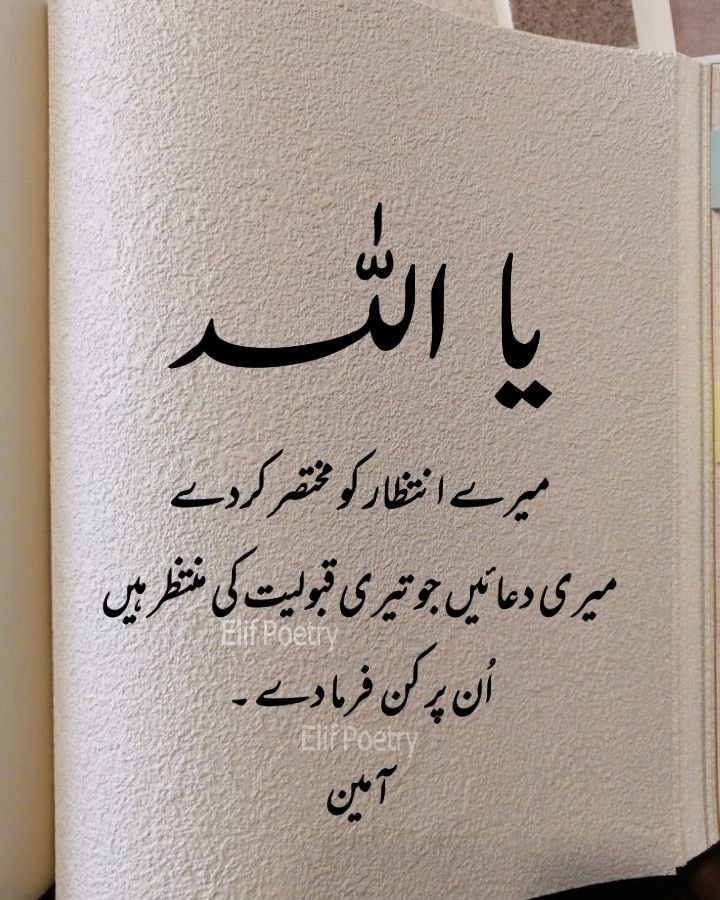 یا اللہ
میرے انتظار کو مختصر کر دے
میری دعائیں جو تیری قبولیت کی منتظر ہیں
Elif Poetry
اُن پر کن فرما دے ۔
Elif Poetry
آمین